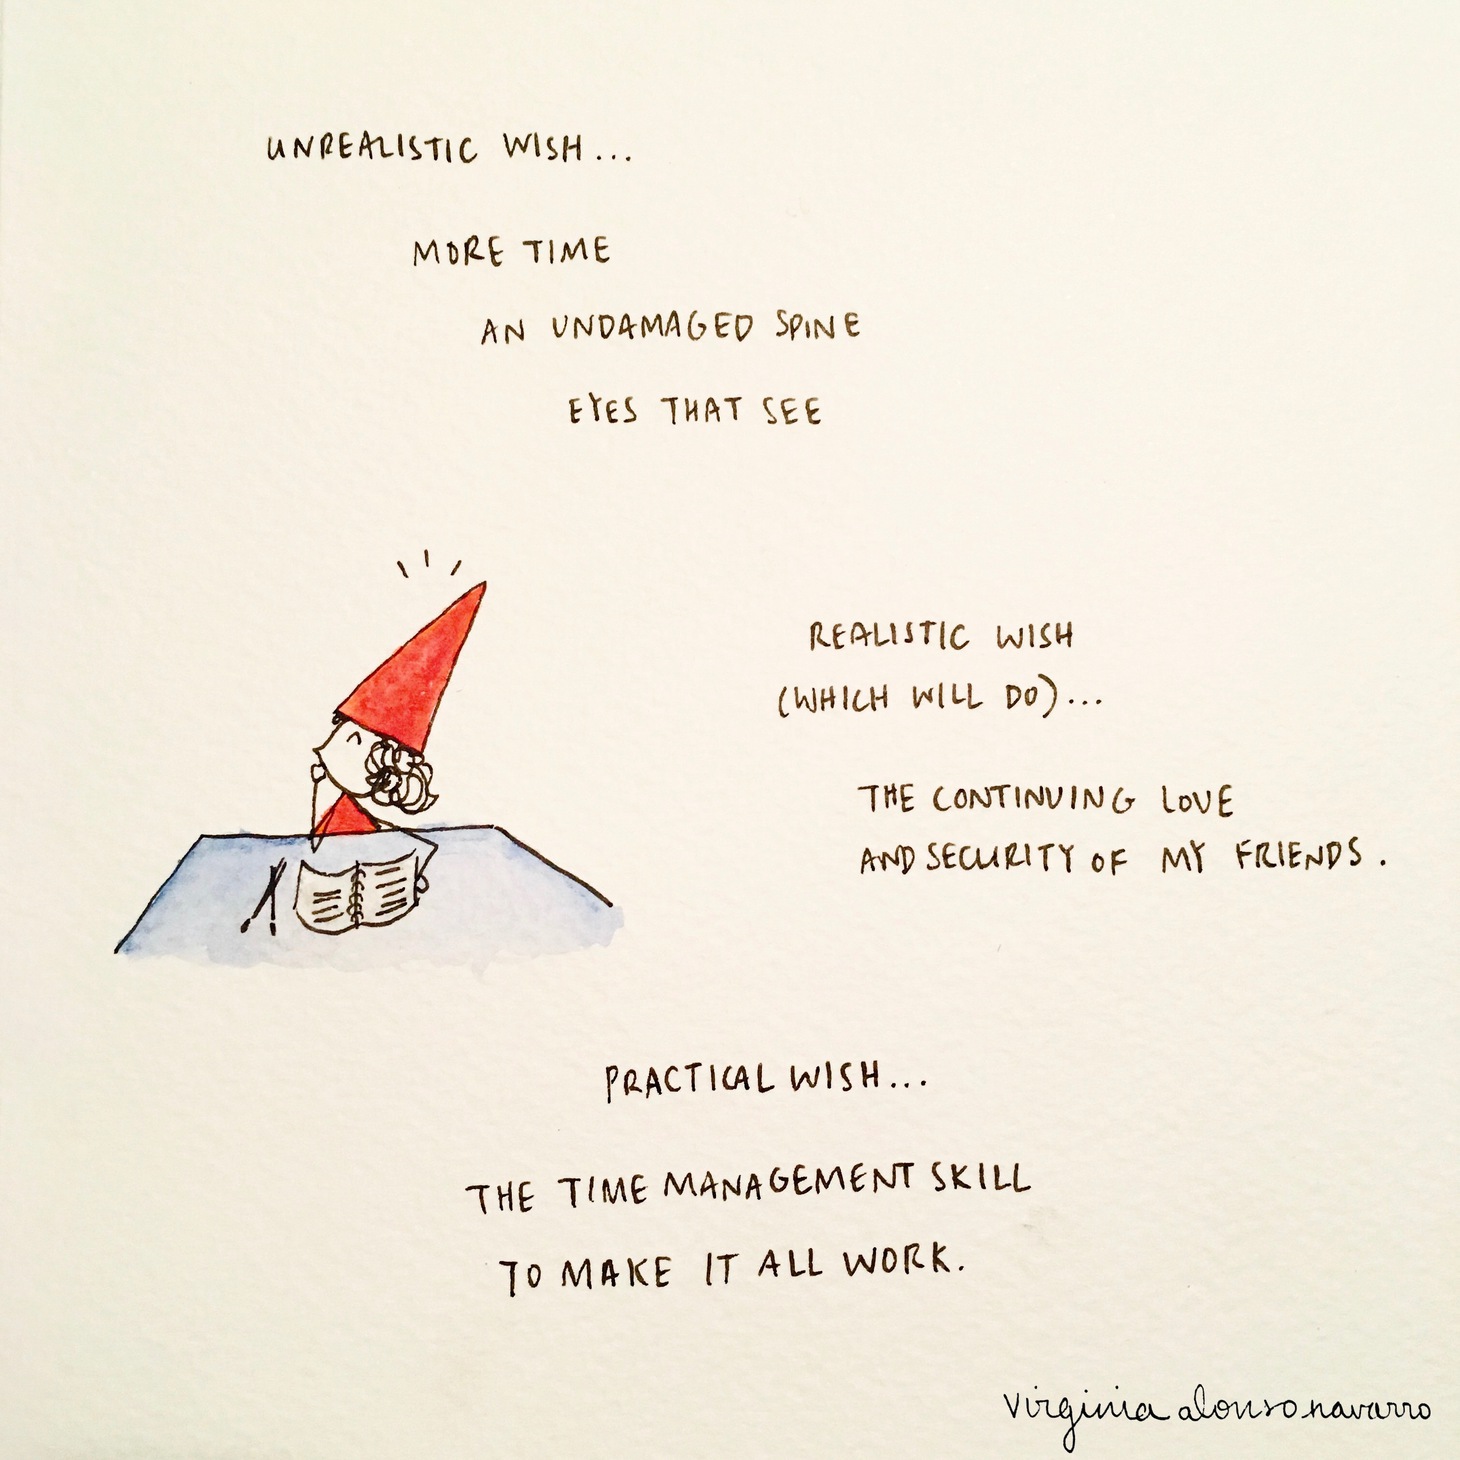 UNREALISTIC WISH...
MORE TIME
AN UNDAMAGED SPINE
EYES THAT SEE
REALISTIC WISH
(WHICH WILL DO)...
THE CONTINUING LOVE
AND SECURITY OF MY FRIENDS.
PRACTICAL WISH...
THE TIME MANAGEMENT SKILL
TO MAKE IT ALL WORK.
Virginia alonso navarro